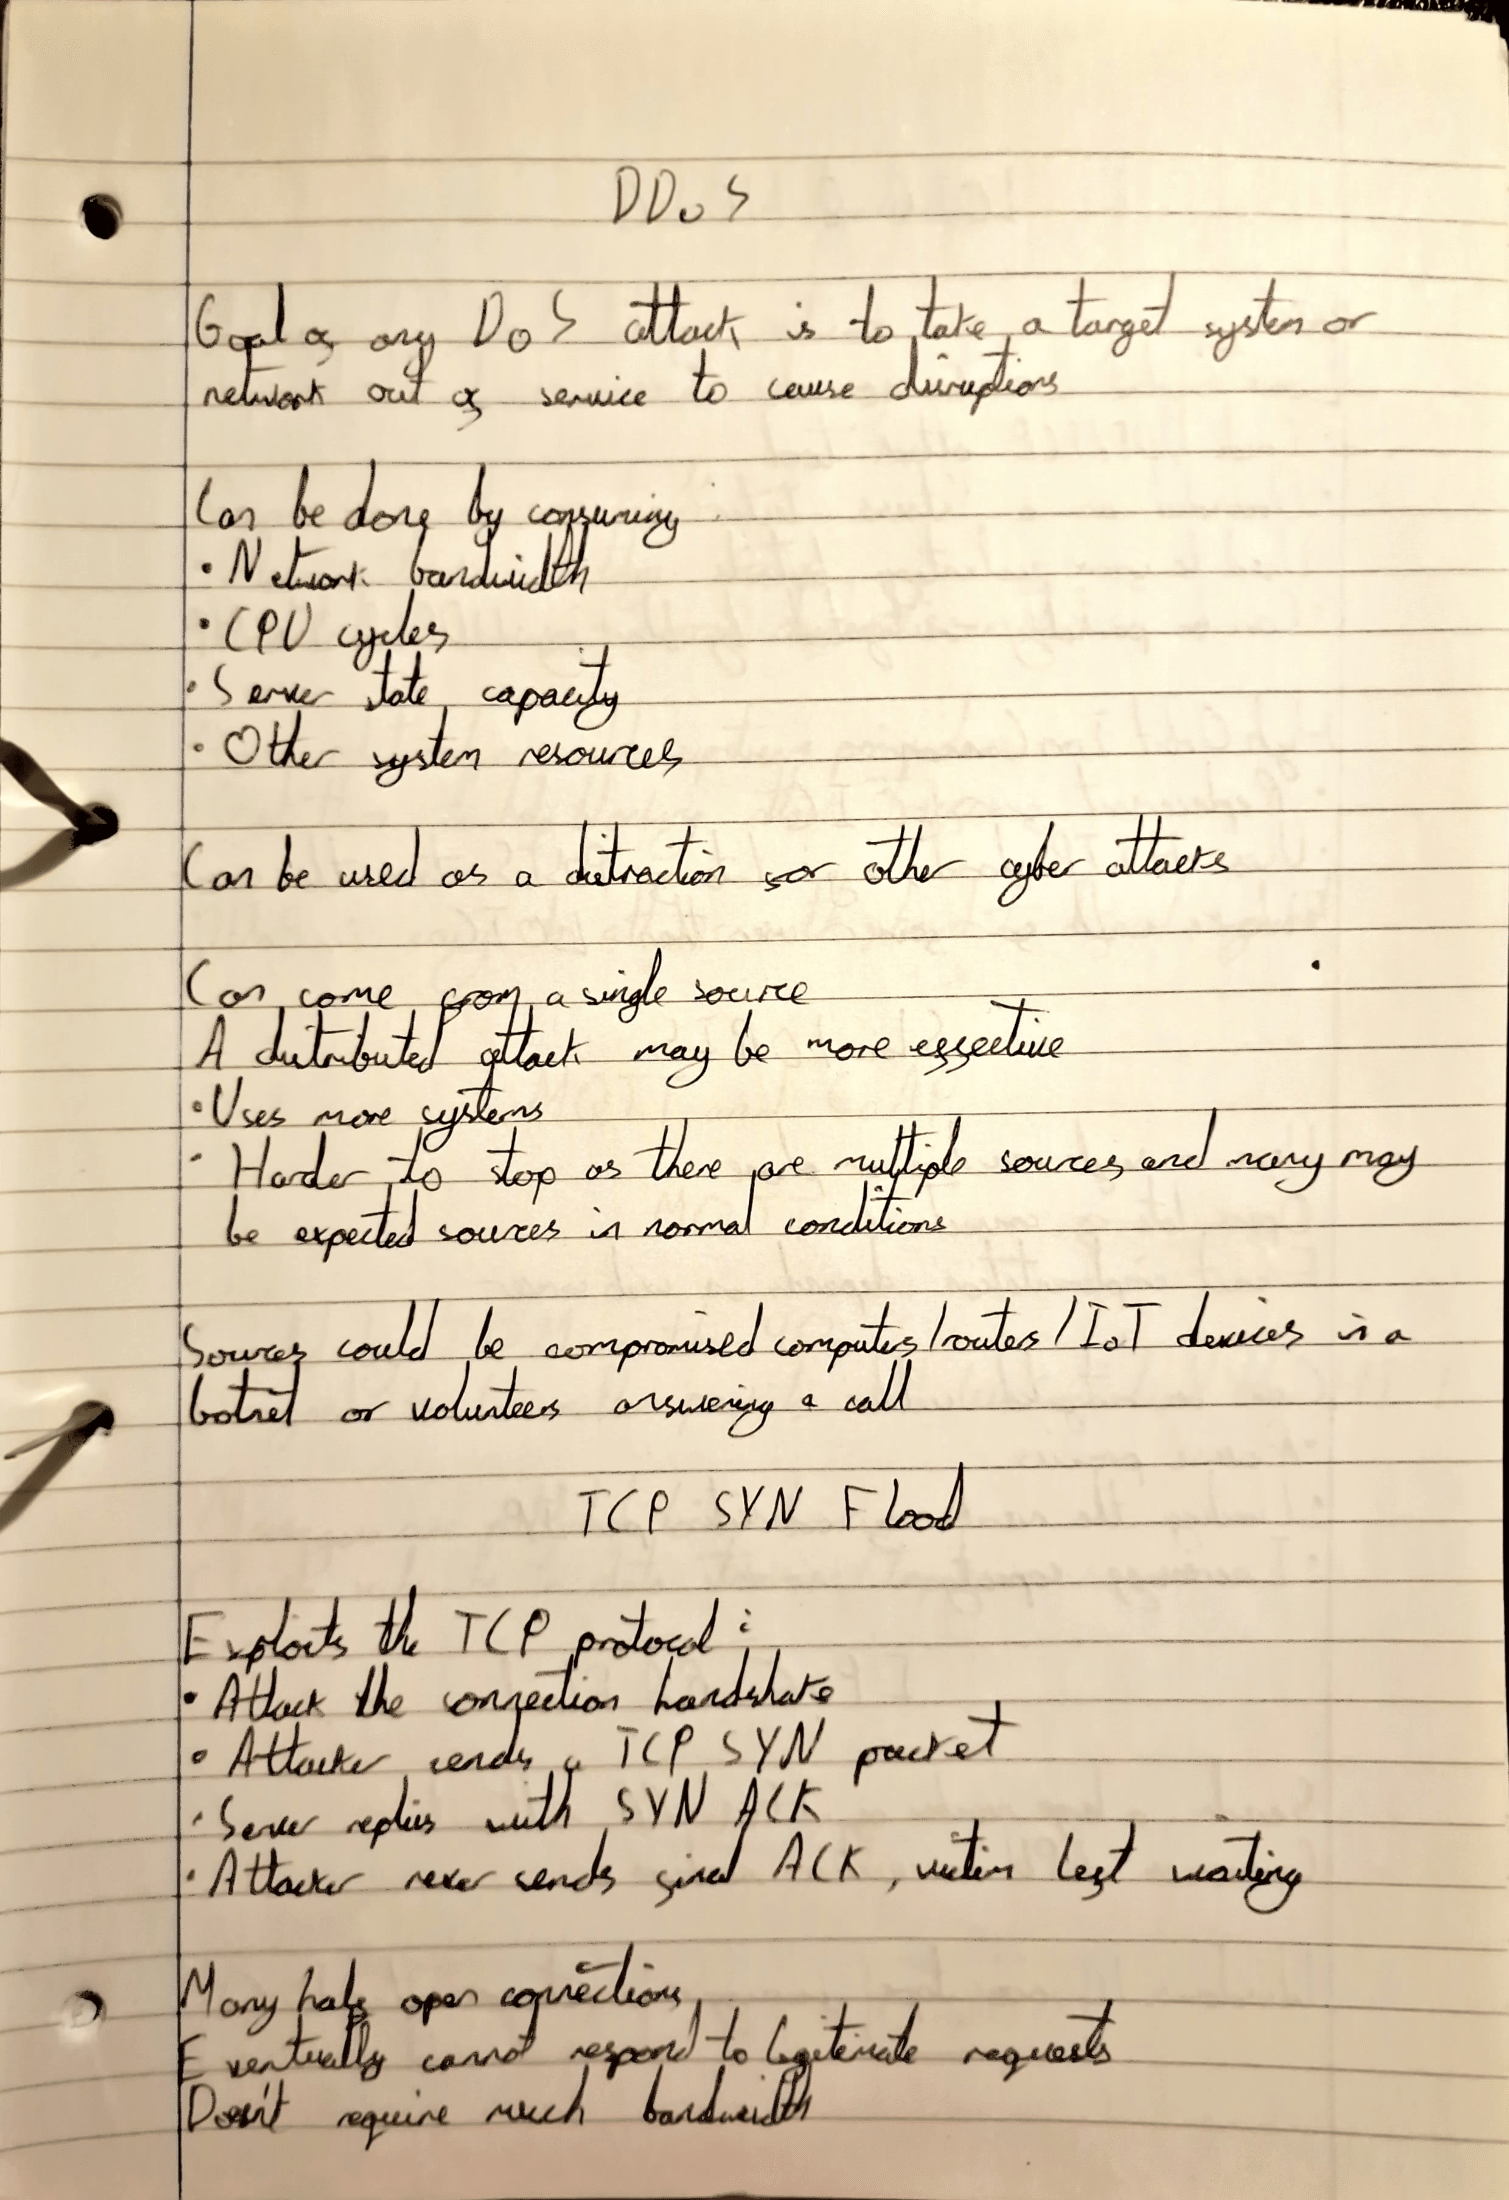 DDoS
Goal of any DoS attack is to take a target system or
network out of service to cause disruptions
Can be done by consuming:
• Network bandwidth
• CPU cycles
• Server state capacity
• Other system resources
Can be used as a distraction for other cyber attacks
Can come from a single source
A distributed attack may be more effective
• Uses more systems
• Harder to stop as there are multiple sources and many may
be expected sources in normal conditions
Sources could be compromised computers/routers/IoT devices in a
botnet or volunteers answering a call
TCP SYN Flood
Exploits the TCP protocol:
• Attack the connection handshake
• Attacker sends a TCP SYN packet
• Server replies with SYN ACK
• Attacker never sends final ACK, victim left waiting
Many half open connections
Eventually cannot respond to legitemate requests
Doesn't require much bandwidth